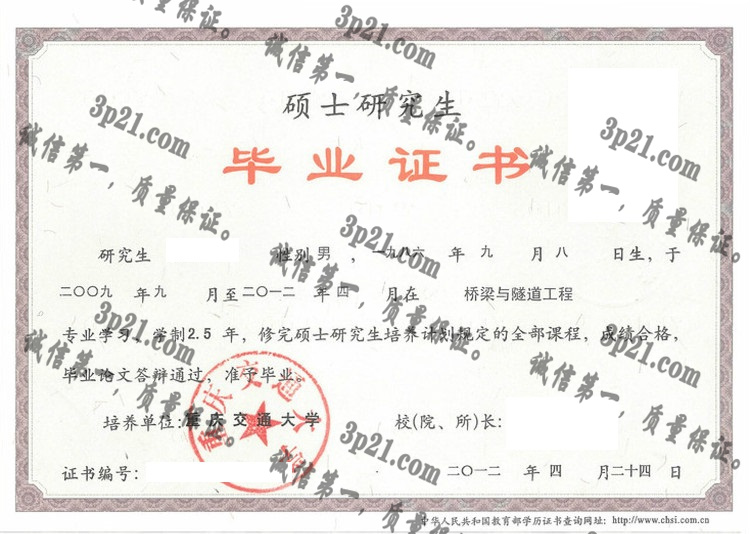 硕士研究生
毕业证书
研究生 性别 男 ，一九八六 年 九 月 八 日生，于
二〇〇九 年 九 月至 二〇一二 年 四 月在 桥梁与隧道工程
专业学习，学制2.5 年，修完硕士研究生培养计划规定的全部课程，成绩合格，
毕业论文答辩通过，准予毕业。
培养单位: 重庆交通大学 校(院、所)长:
证书编号: 二〇一二 年 四 月二十四日
中华人民共和国教育部学历证书查询网址: http://www.chsi.com.cn
重庆交通大学
3p21.com
诚信第一，质量保证。
3p21.com
诚信第一，质量保证。
3p21.com
诚信第一，质量保证。
3p21.com
诚信第一，质量保证。
3p21.com
诚信第一，质量保证。
3p21.com
诚信第一，质量保证。